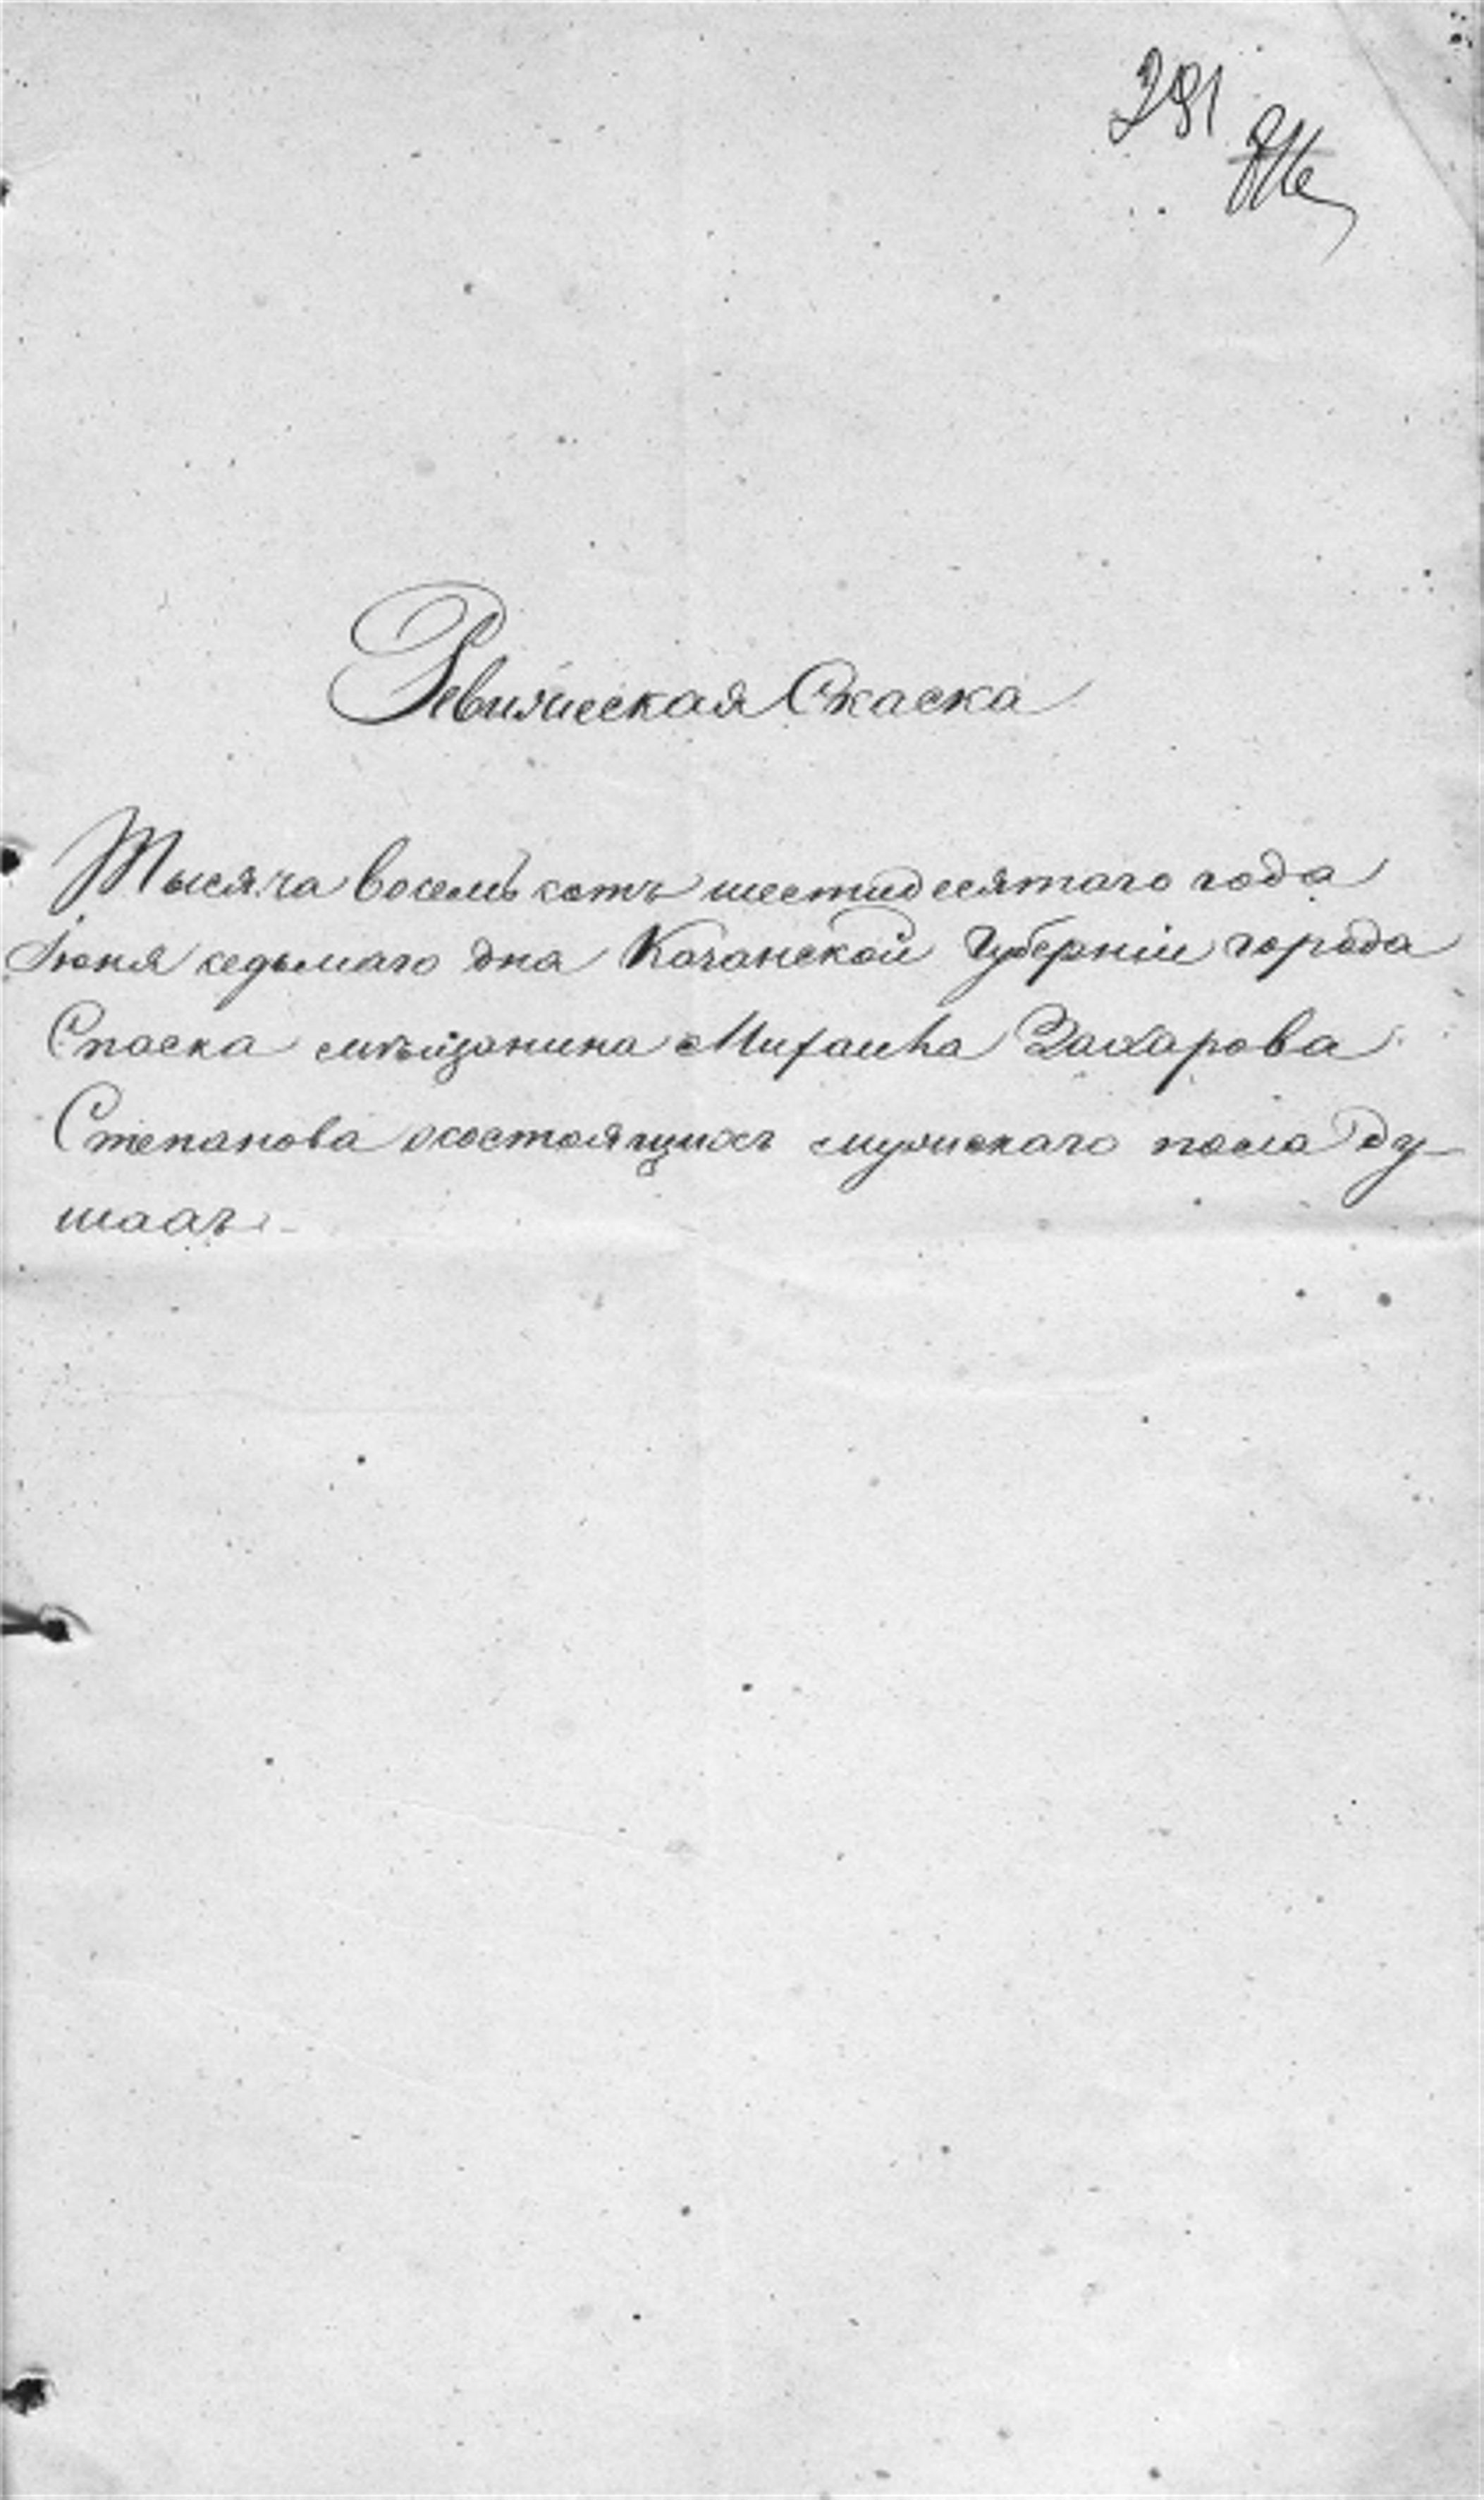 281
Ревижская Скаска
Тысяча восемь сотъ шестидесятаго года
Іюня седьмаго дна Казанской Губерніи города
Спаска мѣщанина Михаила Захарова
Степанова осостоящихъ мужскаго пола ду-
шаахъ